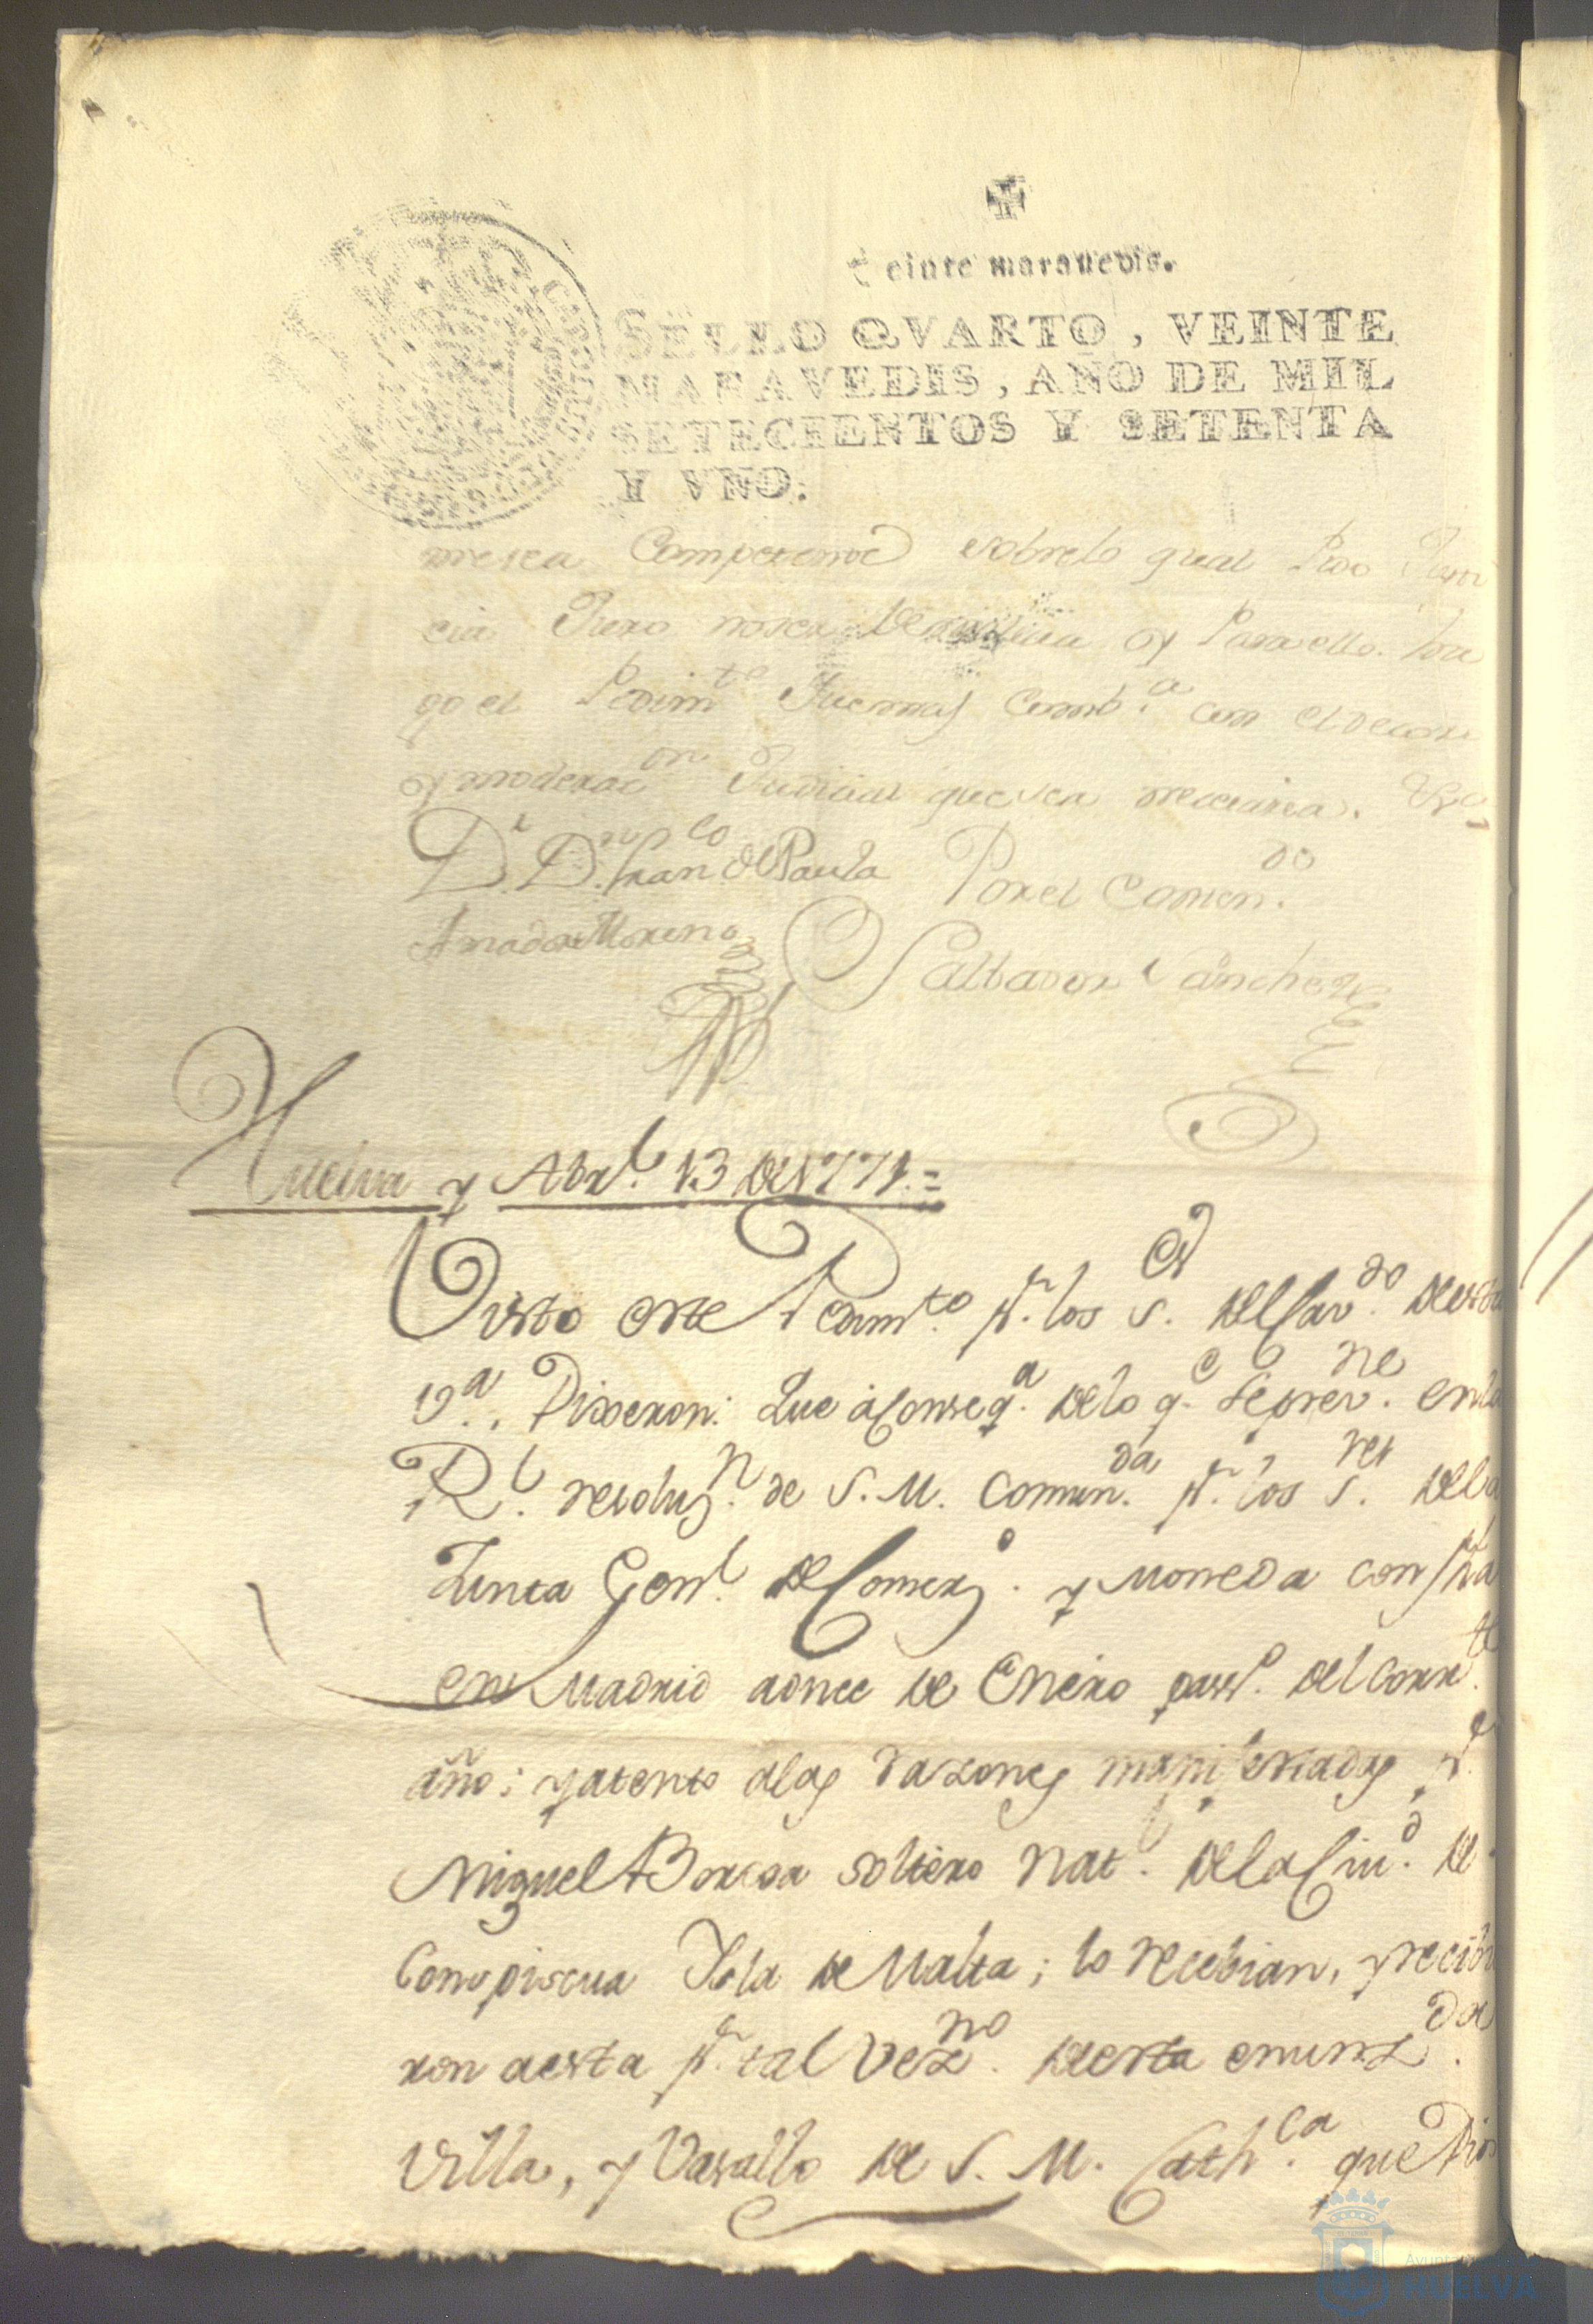 Veinte maravedis.
SELLO QVARTO, VEINTE
MARAVEDIS, AÑO DE MIL
SETECIENTOS Y SETENTA
Y VNO.
sobrelo qual Pido Justi
cia Juro y Paraello
go el Pedimto Juramdo con el
y moderacon Judicial que sea necesaria.
Dr. Dn. Franco de Paula Por el Comen.do
Amador Moreno Salbador Sanchez
Huelva y Abrl. 13 de 1771.=
Visto este Pedimto. pr. los Ses. del Cavdo. de esta
Va. Dixeron: Que à Conseqa. de lo qe. se previne. en la
Rl. resoluzn. de S. M. Comunda. pr. los Sres. de la
Junta Genl. de Comerzo. y Moneda con fha
en Madrid a once de Enero passo. del Corrte.
año; y atento alas razones manifestadas pr.
Miguel Borda soltero Natl. de la Ciud. de
Conspiscua Isla de Malta; lo recebian, y recibie
ron a este pr. tal Vezno. de esta enunzda.
Villa, y Vasallo de S. M. Cathca. que Dios
HUELVA